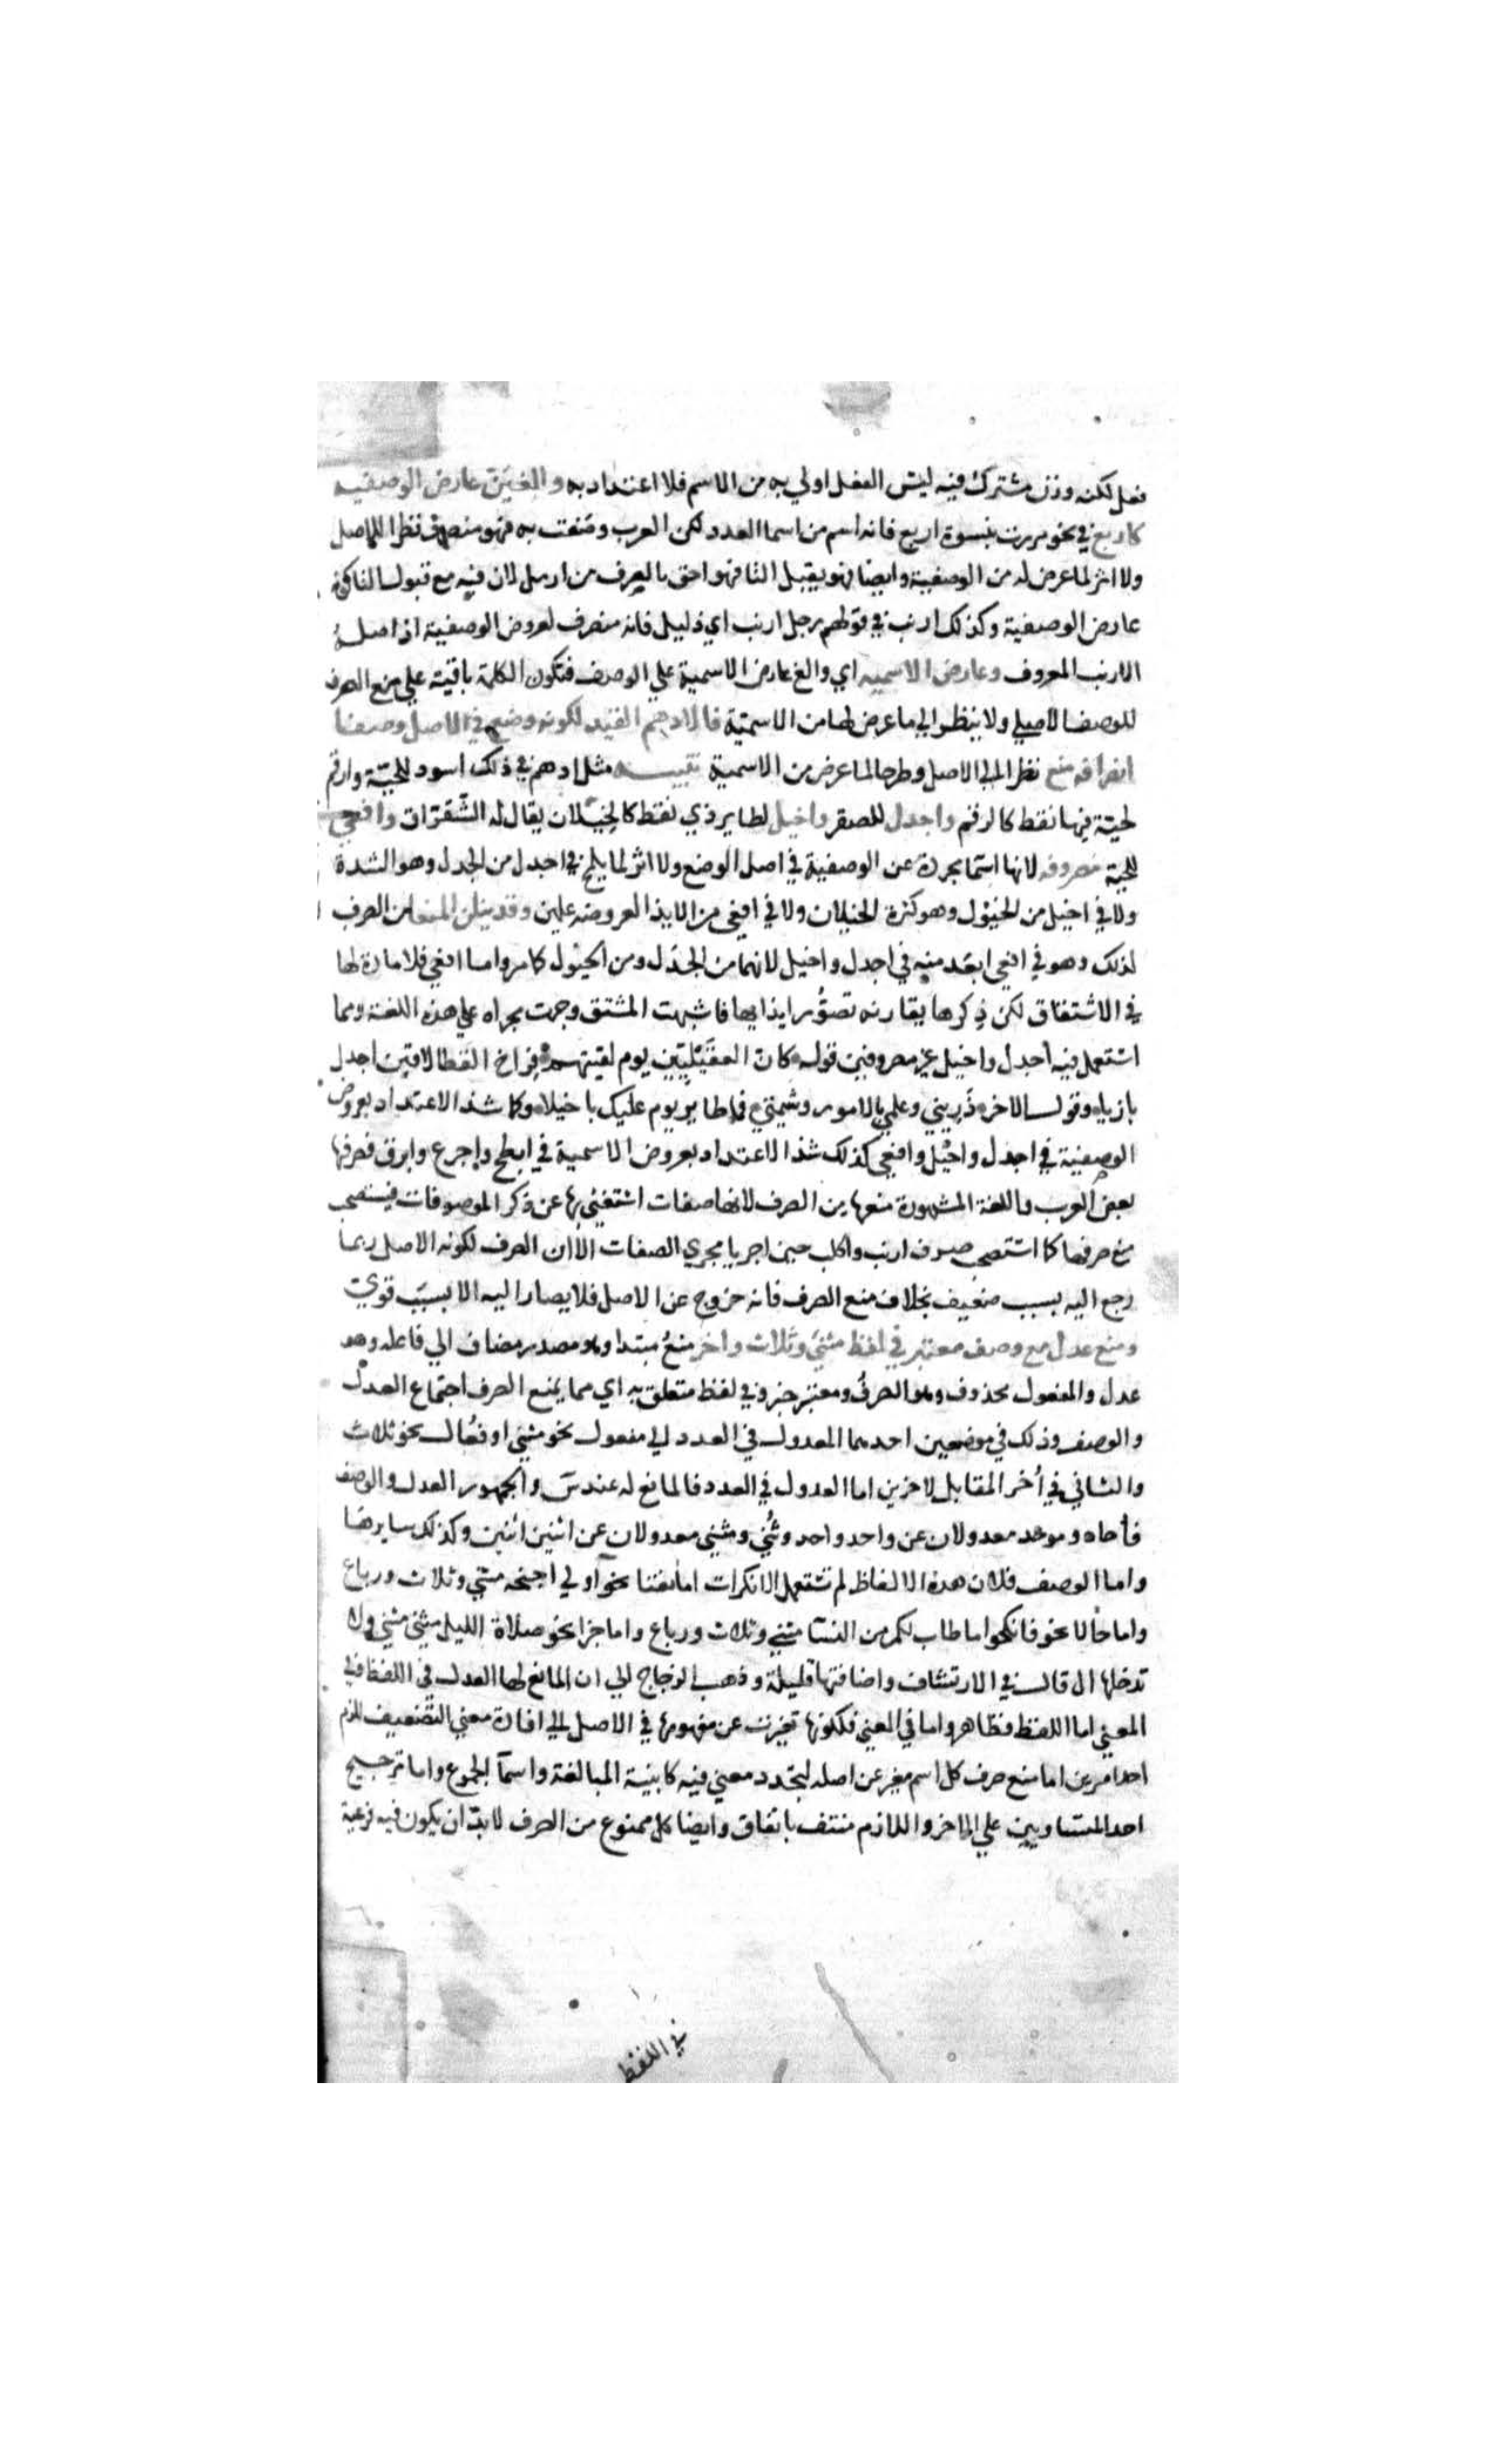 فعل لكنه وزن مشترك فيه ليس الفعل اولي به من الاسم فلا اعتداد به والغين عارض الوصفيه
كاربع في نحو مررت بنسوة اربع فانه اسم من اسما العدد لكن العرب وصفت به فهو منصرف نظرا للاصل
ولا اثر لما عرض له من الوصفية وايضا فهو يقبل التا فهو احق بالصرف من ارمل لان فيه مع قبول التا كونه
عارض الوصفية وكذلك ارنب في قولهم رجل ارنب اي ذليل فانه منصرف لعروض الوصفية اذ اصله
الارنب المعروف وعارض الاسميه اي والغ عارض الاسمية علي الوصف فتكون الكلمة باقية علي منع الصرف
للوصف الاصلي ولا ينظر الي ما عرض لها من الاسمية فالادهم القيد لكونه وضع في الاصل وصفا
انصرافه منع نظرا الي الاصل وطرحا لما عرض من الاسمية تنبيــه مثل ادهم في ذلك اسود للحية وارقم
لحية فيها نقط كالرقم واجدل للصقر واخيل لطاير ذي نقط كالخيلان يقال له الشقراق وافعي
للحية مصروفه لانها اسما مجردة عن الوصفية في اصل الوضع ولا اثر لما يلمح في اجدل من الجدل وهو الشدة
ولا في اخيل من الخيول وهو كثرة الخيلان ولا في افعي من الايذا لعروضه علين وقد ينلن المنعا من الصرف
لذلك وهو في افعي ابعد منه في اجدل واخيل لانهما من الجدل ومن الخيول كما مر واما افعي فلا مادة لها
في الاشتقاق لكن ذكرها يقارنه تصور ايذايها فاشبهت المشتق وجرت مجراه علي هذه اللغة ومما
استعمل فيه اجدل واخيل غير مصروفين قوله كان العقيليين يوم لقيتهم فراخ القطا لاقين اجدل
بازيا وقول الاخر ذريني وعلمي بالامور وشيمتي فما طايري يوم عليك باخيلا وكما شذ الاعتداد بعروض
الوصفية في اجدل واخيل وافعي كذلك شذ الاعتداد بعروض الاسمية في ابطح واجرع وابرق فصرفها
بعض العرب واللغة المشهورة منعها من الصرف لانها صفات استغني بها عن ذكر الموصوفات فيستصحب
منع صرفها كما استصحب صرف ارنب واكلب حين اجريا مجري الصفات الا ان الصرف لكونه الاصل ربما
رجع اليه بسبب ضعيف بخلاف منع الصرف فانه خروج عن الاصل فلا يصار اليه الا بسبب قوي
ومنع عدل مع وصف معتبر في لفظ مثني وثلاث واخر منع مبتدا وهو مصدر مضاف الي فاعله وهو
عدل والمفعول محذوف وهو الصرف ومعتبر خبره وفي لفظ متعلق به اي مما يمنع الصرف اجتماع العدل
والوصف وذلك في موضعين احدهما المعدول في العدد الي مفعول نحو مثني او فعال نحو ثلاث
والثاني في أخر المقابل لاخرين اما العدول في العدد فالمانع له عند س والجمهور العدل والوصف
فأحاد وموحد معدولان عن واحد واحد وثُني ومثني معدولان عن اثنين اثنين وكذلك سايرها
واما الوصف فلان هذه الالفاظ لم تستعمل الا نكرات اما نعتا نحو اولي اجنحه مثني وثلاث ورباع
واما حالا نحو فانكحوا ما طاب لكم من النسآ مثني وثلاث ورباع واما خبرا نحو صلاة الليل مثني مثني ولا
تدخلها ال قال في الارتشاف واضافتها قليلة وذهب الزجاج الي ان المانع لها العدل في اللفظ وفي
المعني اما اللفظ فظاهر واما في المعني فلكونها تغيرت عن مفهومها في الاصل الي افادة معني التضعيف للزم
احد امرين اما منع صرف كل اسم مغير عن اصله لتجدد معني فيه كابنية المبالغة واسمآ الجموع واما ترجيح
احد المتساويين علي الاخر واللازم منتف باتفاق وايضا كل ممنوع من الصرف لابد ان يكون فيه فرعية
في اللفظ